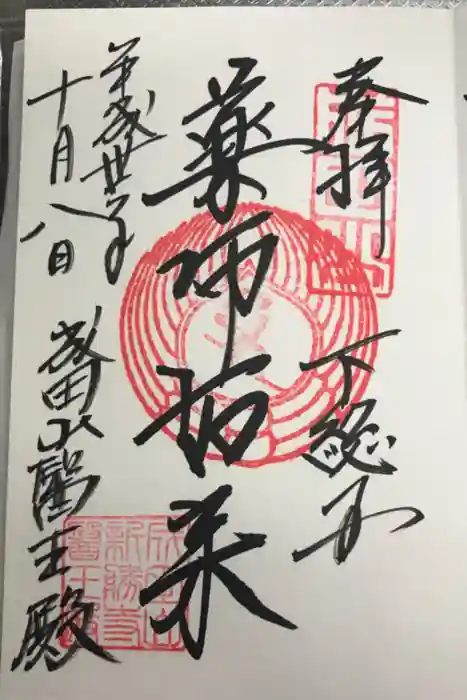 奉拝
下総国
薬師如来
平成卅年
十月八日
成田山醫王殿
成田山
新勝寺
醫王殿